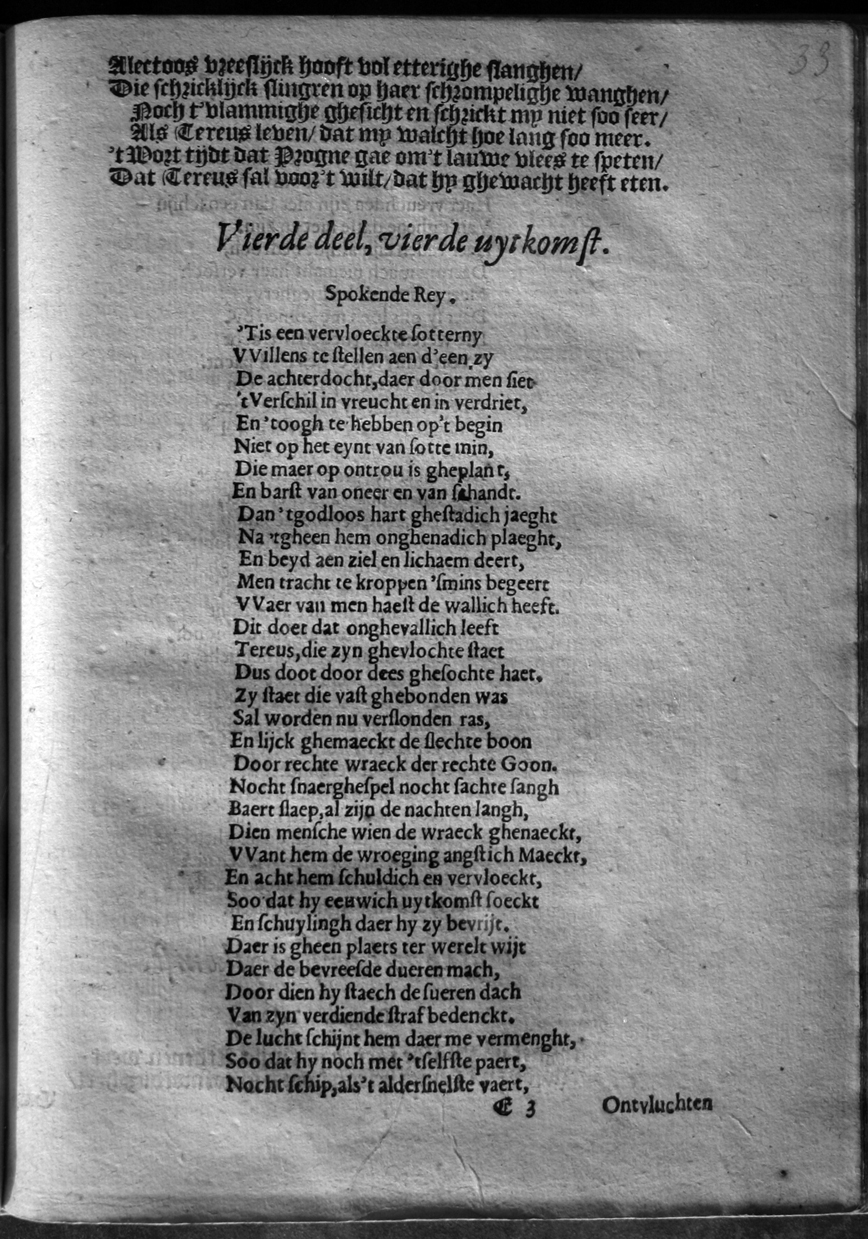 33
Alectoos vreeslijck hooft vol etterighe slanghen/
Die schricklijck slingren op haer schrompelighe wanghen/
Noch t'vlammighe ghesicht en schrickt my niet soo seer/
Als Tereus leven/ dat my walcht hoe lang soo meer.
't Wort tijdt dat Progne gae om't lauwe vlees te speten/
Dat Tereus sal voor't wilt/ dat hy ghewacht heeft eten.
Vierde deel, vierde uytkomst.
Spokende Rey.
'Tis een vervloeckte sotterny
VVillens te stellen aen d'een zy
De achterdocht, daer door men siet
't Verschil in vreucht en in verdriet,
En 'toogh te hebben op't begin
Niet op het eynt van sotte min,
Die maer op ontrou is gheplant,
En barst van oneer en van schandt.
Dan 'tgodloos hart ghestadich jaeght
Na 'tgheen hem onghenadich plaeght,
En beyd aen ziel en lichaem deert,
Men tracht te kroppen 'smins begeert
VVaer van men haest de wallich heeft.
Dit doet dat onghevallich leeft
Tereus, die zyn ghevlochte staet
Dus doot door dees ghesochte haet.
Zy staet die vast ghebonden was
Sal worden nu verslonden ras,
En lijck ghemaeckt de slechte boon
Door rechte wraeck der rechte Goon.
Nocht snaerghespel nocht sachte sangh
Baert slaep, al zijn de nachten langh,
Dien mensche wien de wraeck ghenaeckt,
VVant hem de wroeging angstich Maeckt,
En acht hem schuldich en vervloeckt,
Soo dat hy eeuwich uytkomst soeckt
En schuylingh daer hy zy bevrijt.
Daer is gheen plaets ter werelt wijt
Daer de bevreesde dueren mach,
Door dien hy staech de sueren dach
Van zyn verdiende straf bedenckt.
De lucht schijnt hem daer me vermenght,
Soo dat hy noch met 'tselfste paert,
Nocht schip, als't aldersnelste vaert,
E 3 Ontvluchten